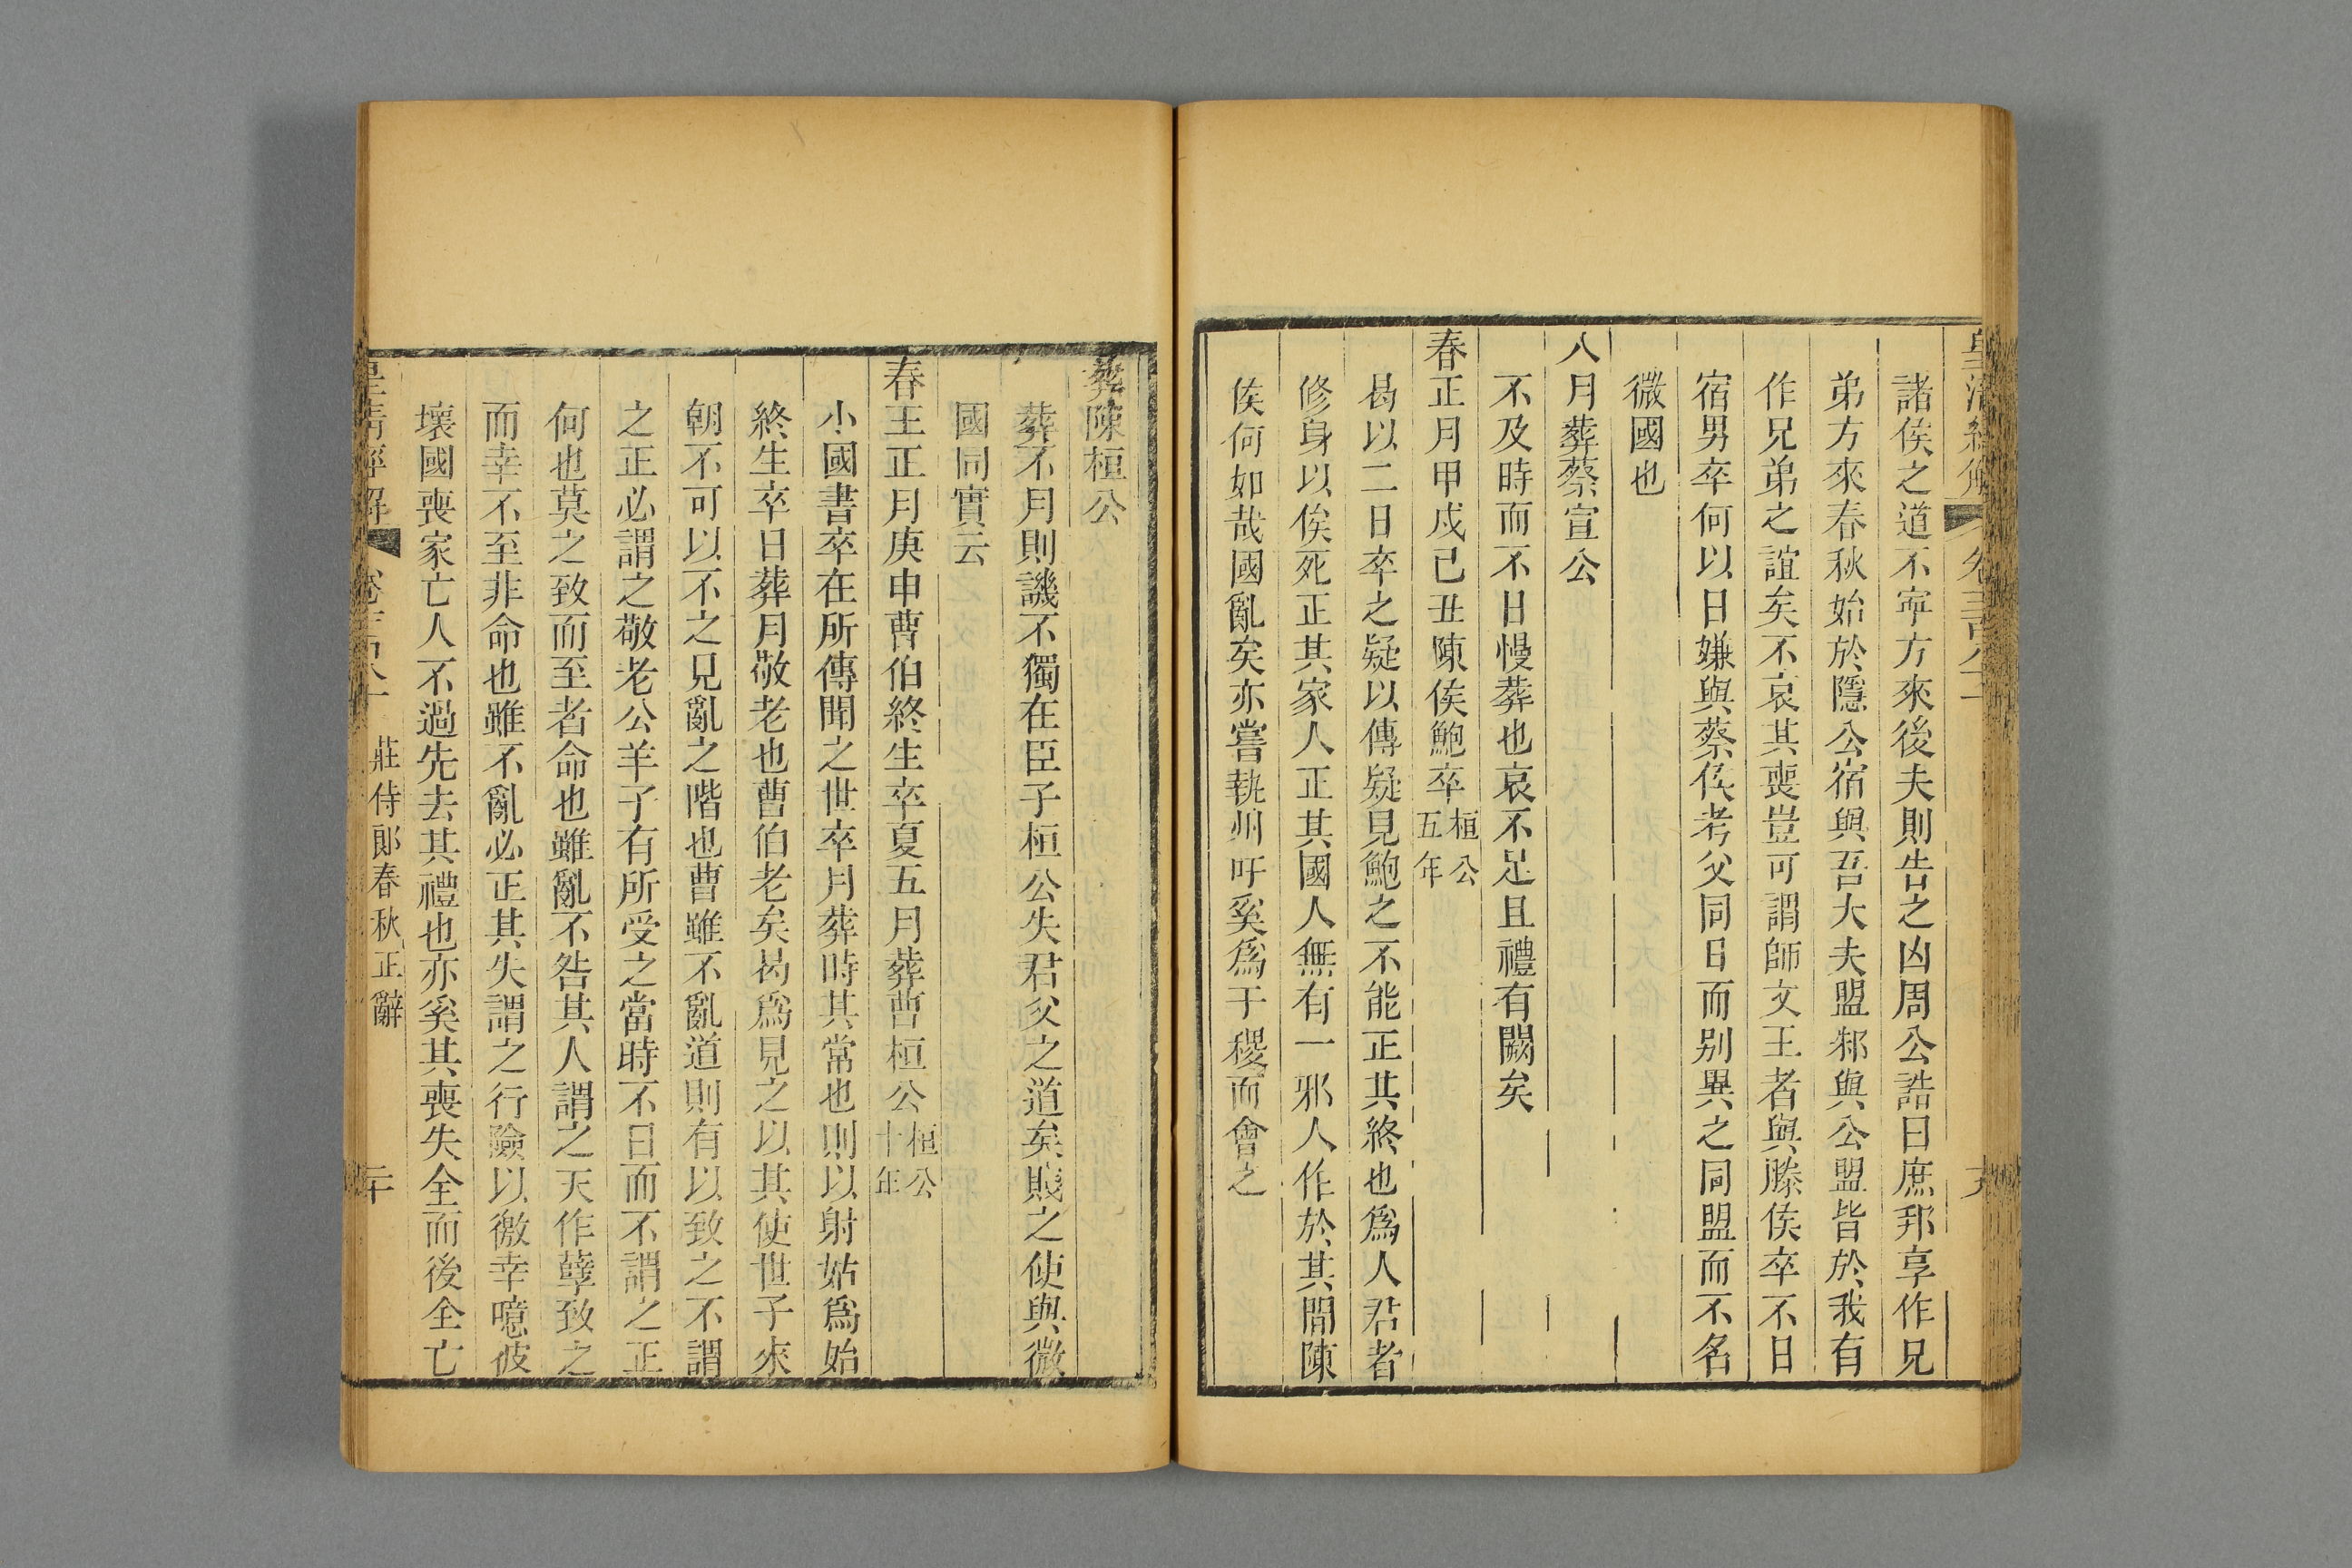 諸侯之道不寧方來後夫則告之凶周公誥曰庶邦享作兄
弟方來春秋始於隱公宿與吾大夫盟邾與公盟皆於我有
作兄弟之誼矣不哀其喪豈可謂師文王者與滕侯卒不日
宿男卒何以日嫌與蔡侯考父同日而別異之同盟而不名
微國也
八月葬蔡宣公
不及時而不日慢葬也哀不足且禮有闕矣
春正月甲戌已丑陳侯鮑卒桓公五年
曷以二日卒之疑以傳疑見鮑之不能正其終也爲人君者
修身以俟死正其家人正其國人無有一邪人作於其間陳
侯何如哉國亂矣亦嘗執州吁奚爲于稷而會之
葬陳桓公
葬不月則譏不獨在臣子桓公失君父之道矣賤之使與微
國同實云
春王正月庚申曹伯終生卒夏五月葬曹桓公桓公十年
小國書卒在所傳聞之世卒月葬時其常也則以射姑爲始
終生卒日葬月敬老也曹伯老矣曷爲見之以其使世子來
朝不可以不之見亂之階也曹雖不亂道則有以致之不謂
之正必謂之敬老公羊子有所受之當時不日而不謂之正
何也莫之致而至者命也雖亂不咎其人謂之天作孽致之
而幸不至非命也雖不亂必正其失謂之行險以徼幸噫彼
壞國喪家亡人不過先去其禮也亦奚其喪失全而後全亡
皇清經解 莊侍郎春秋正辭